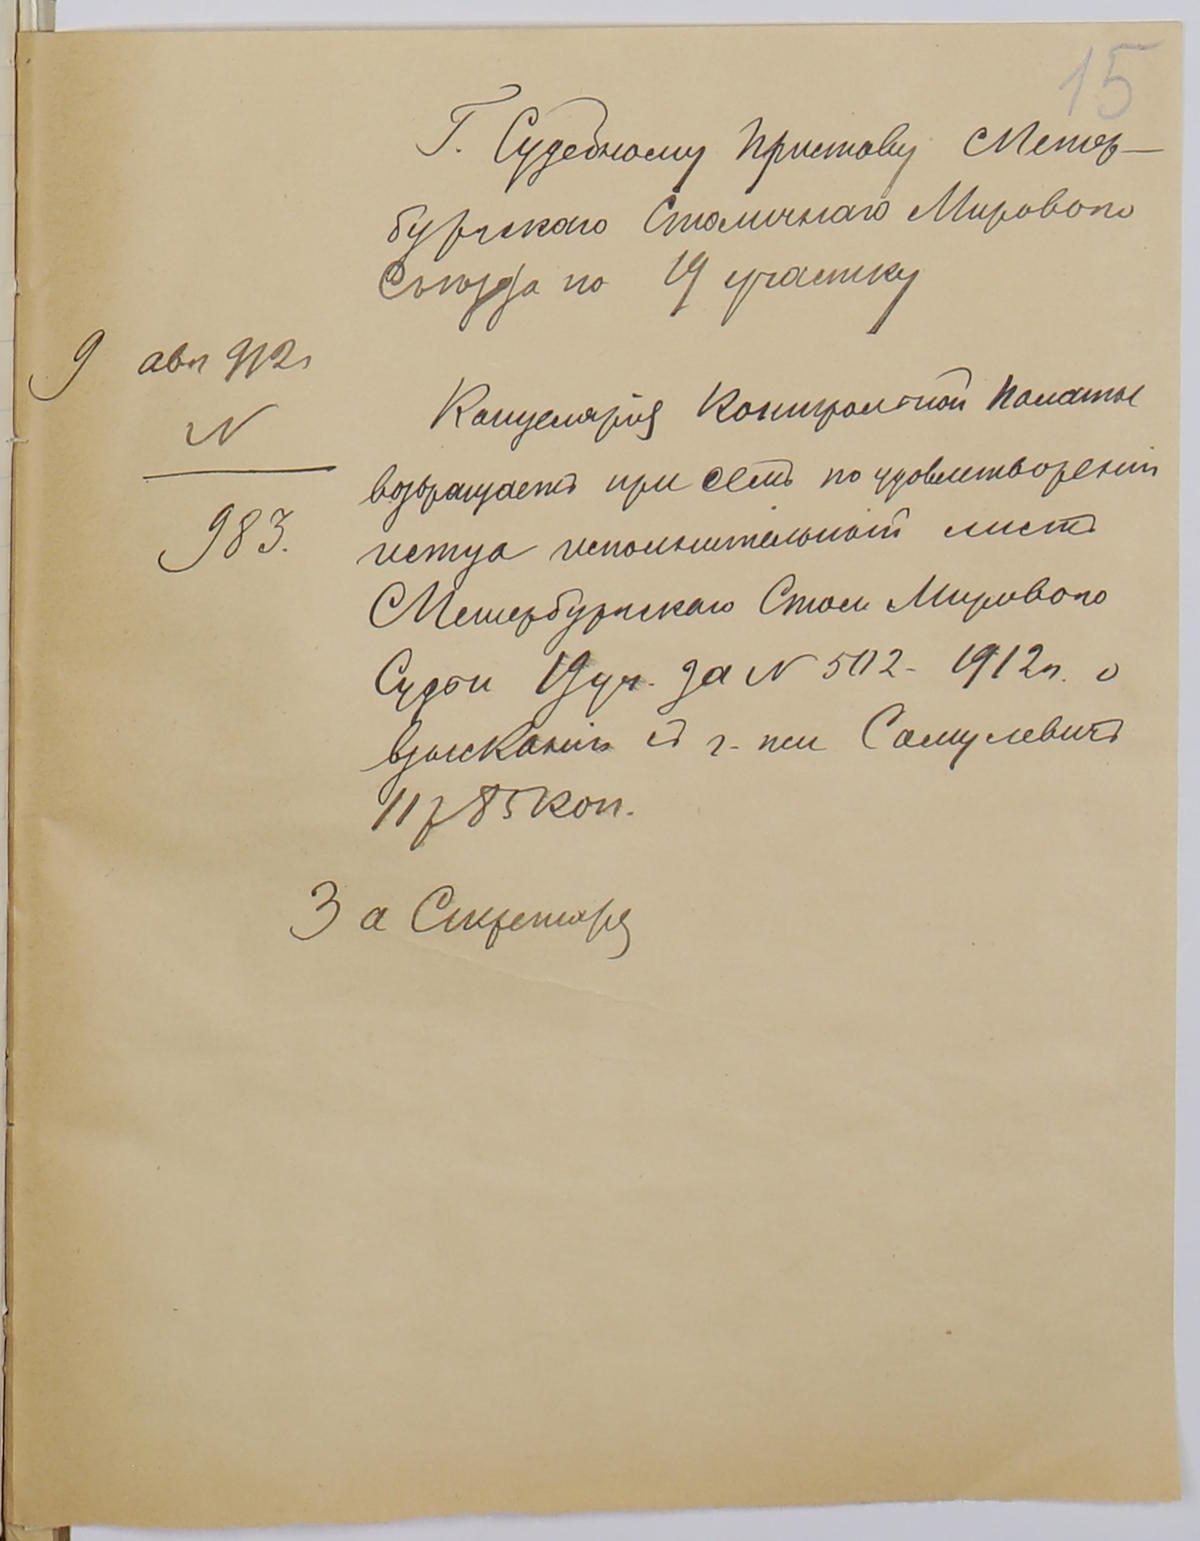 15
Г. Судебному Приставу СПетер-
бургскаго Столичнаго Мирового
Съѣзда по 19 участку
9 авг 912г
N
983.
Канцелярія Контрольной Палаты
возвращаетъ при семъ по удовлетвореніи
истца исполнительный листъ
СПетербургскаго Стол Мирового
Судьи 19 уч. за N 502 - 1912г. о
взысканіи съ г-жи Самулевичъ
11р 85 коп.
За Секретаря